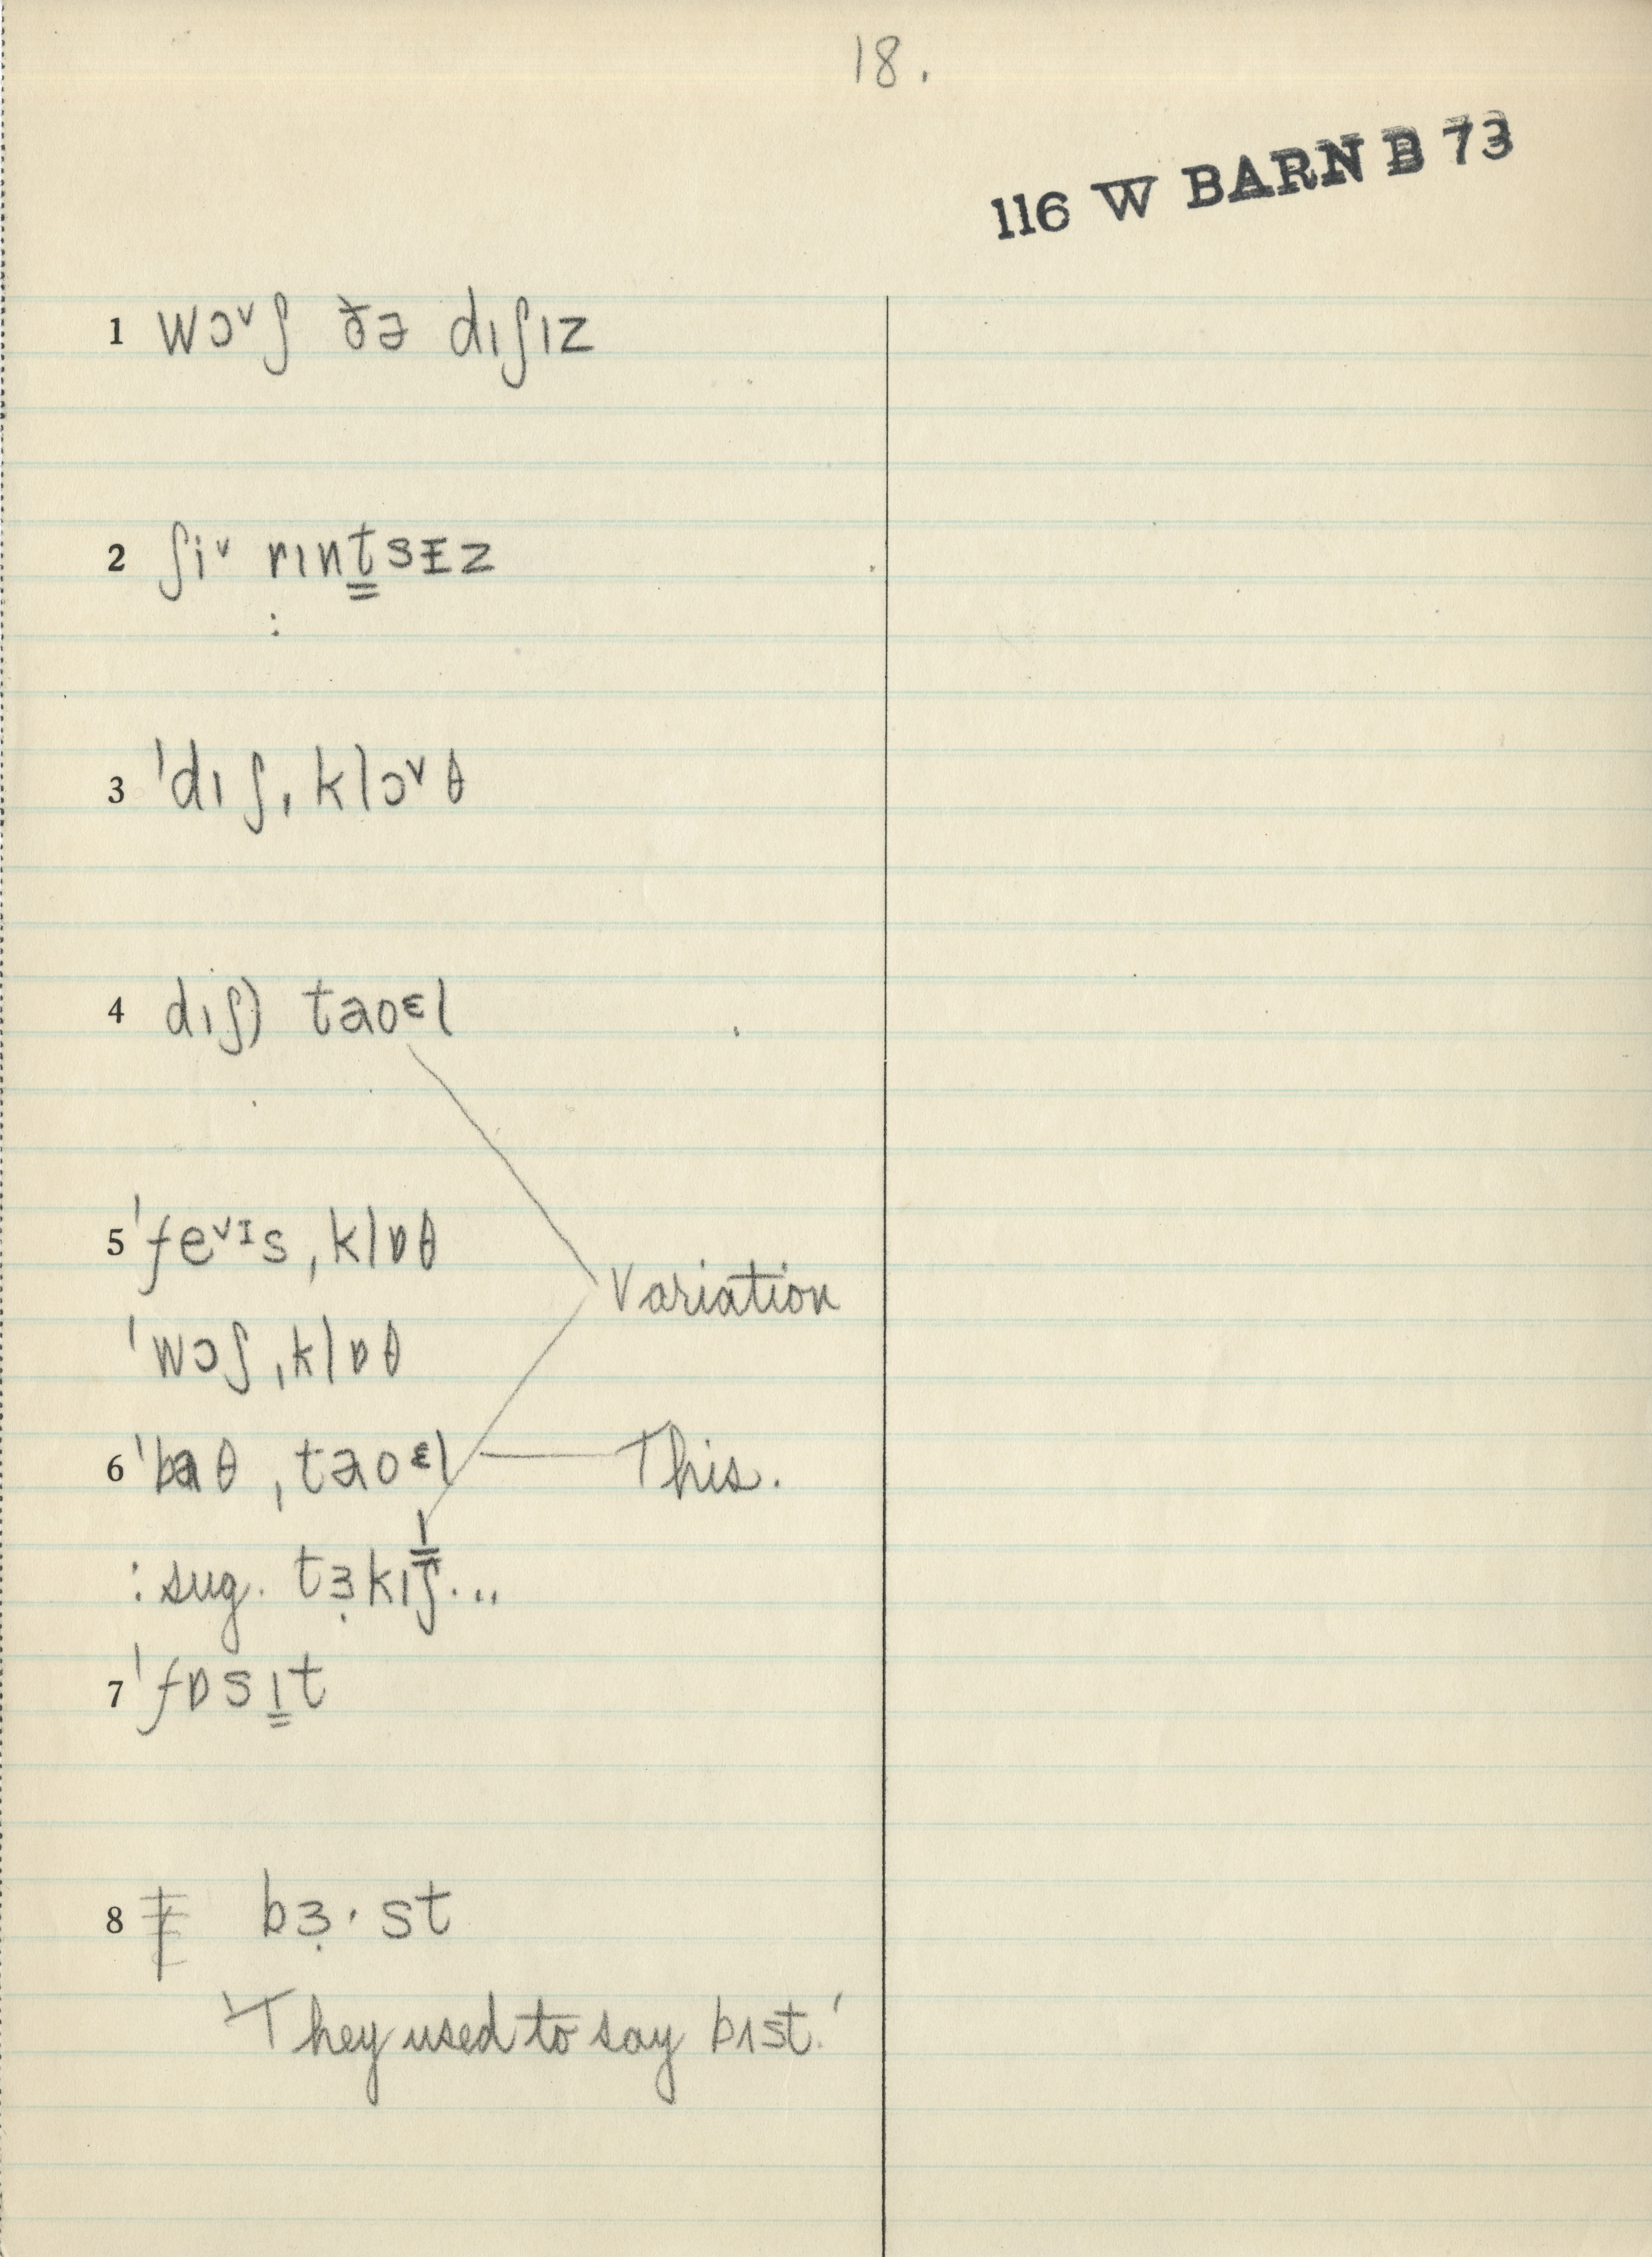 18.
116 W BARN B 73
1 wɔᵛʃ ðə dıʃız
2 ʃiᵛ rınt̳sɪ̵z
:
3 ˈdıʃˌklɔᵛθ
4 dıʃ) taoᵋl
5 ˈfeᵛᶦsˌklɒθ
Variation
ˈwɔʃˌklɒθ
6 ˈbaθˌtaoᵋl — This.
: sug. tɜ̣kıʃ...
7 ˈfɒsı̳t
8 bɜ̣·st
'They used to say bıst.'